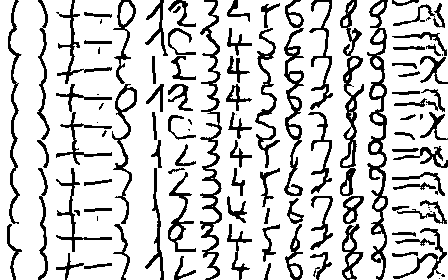 ( ) + - 0 1 2 3 4 5 6 7 8 9 = x
( ) + - 1 3 4 5 6 7 8 9 =
( ) + - 1 2 3 4 5 6 7 8 9 = x
( ) + - 0 1 2 3 4 5 6 7 8 9 =
( ) + - 3 4 5 6 7 8 9 = x
( ) + - 1 2 3 4 5 6 7 8 9 = x
( ) + - 1 2 3 4 5 6 7 8 9 =
( ) + - 1 2 3 4 5 6 7 8 9 = x
( ) + - 1 2 3 4 5 6 7 8 9 =
( ) + - 1 2 3 4 5 6 7 8 9 = x